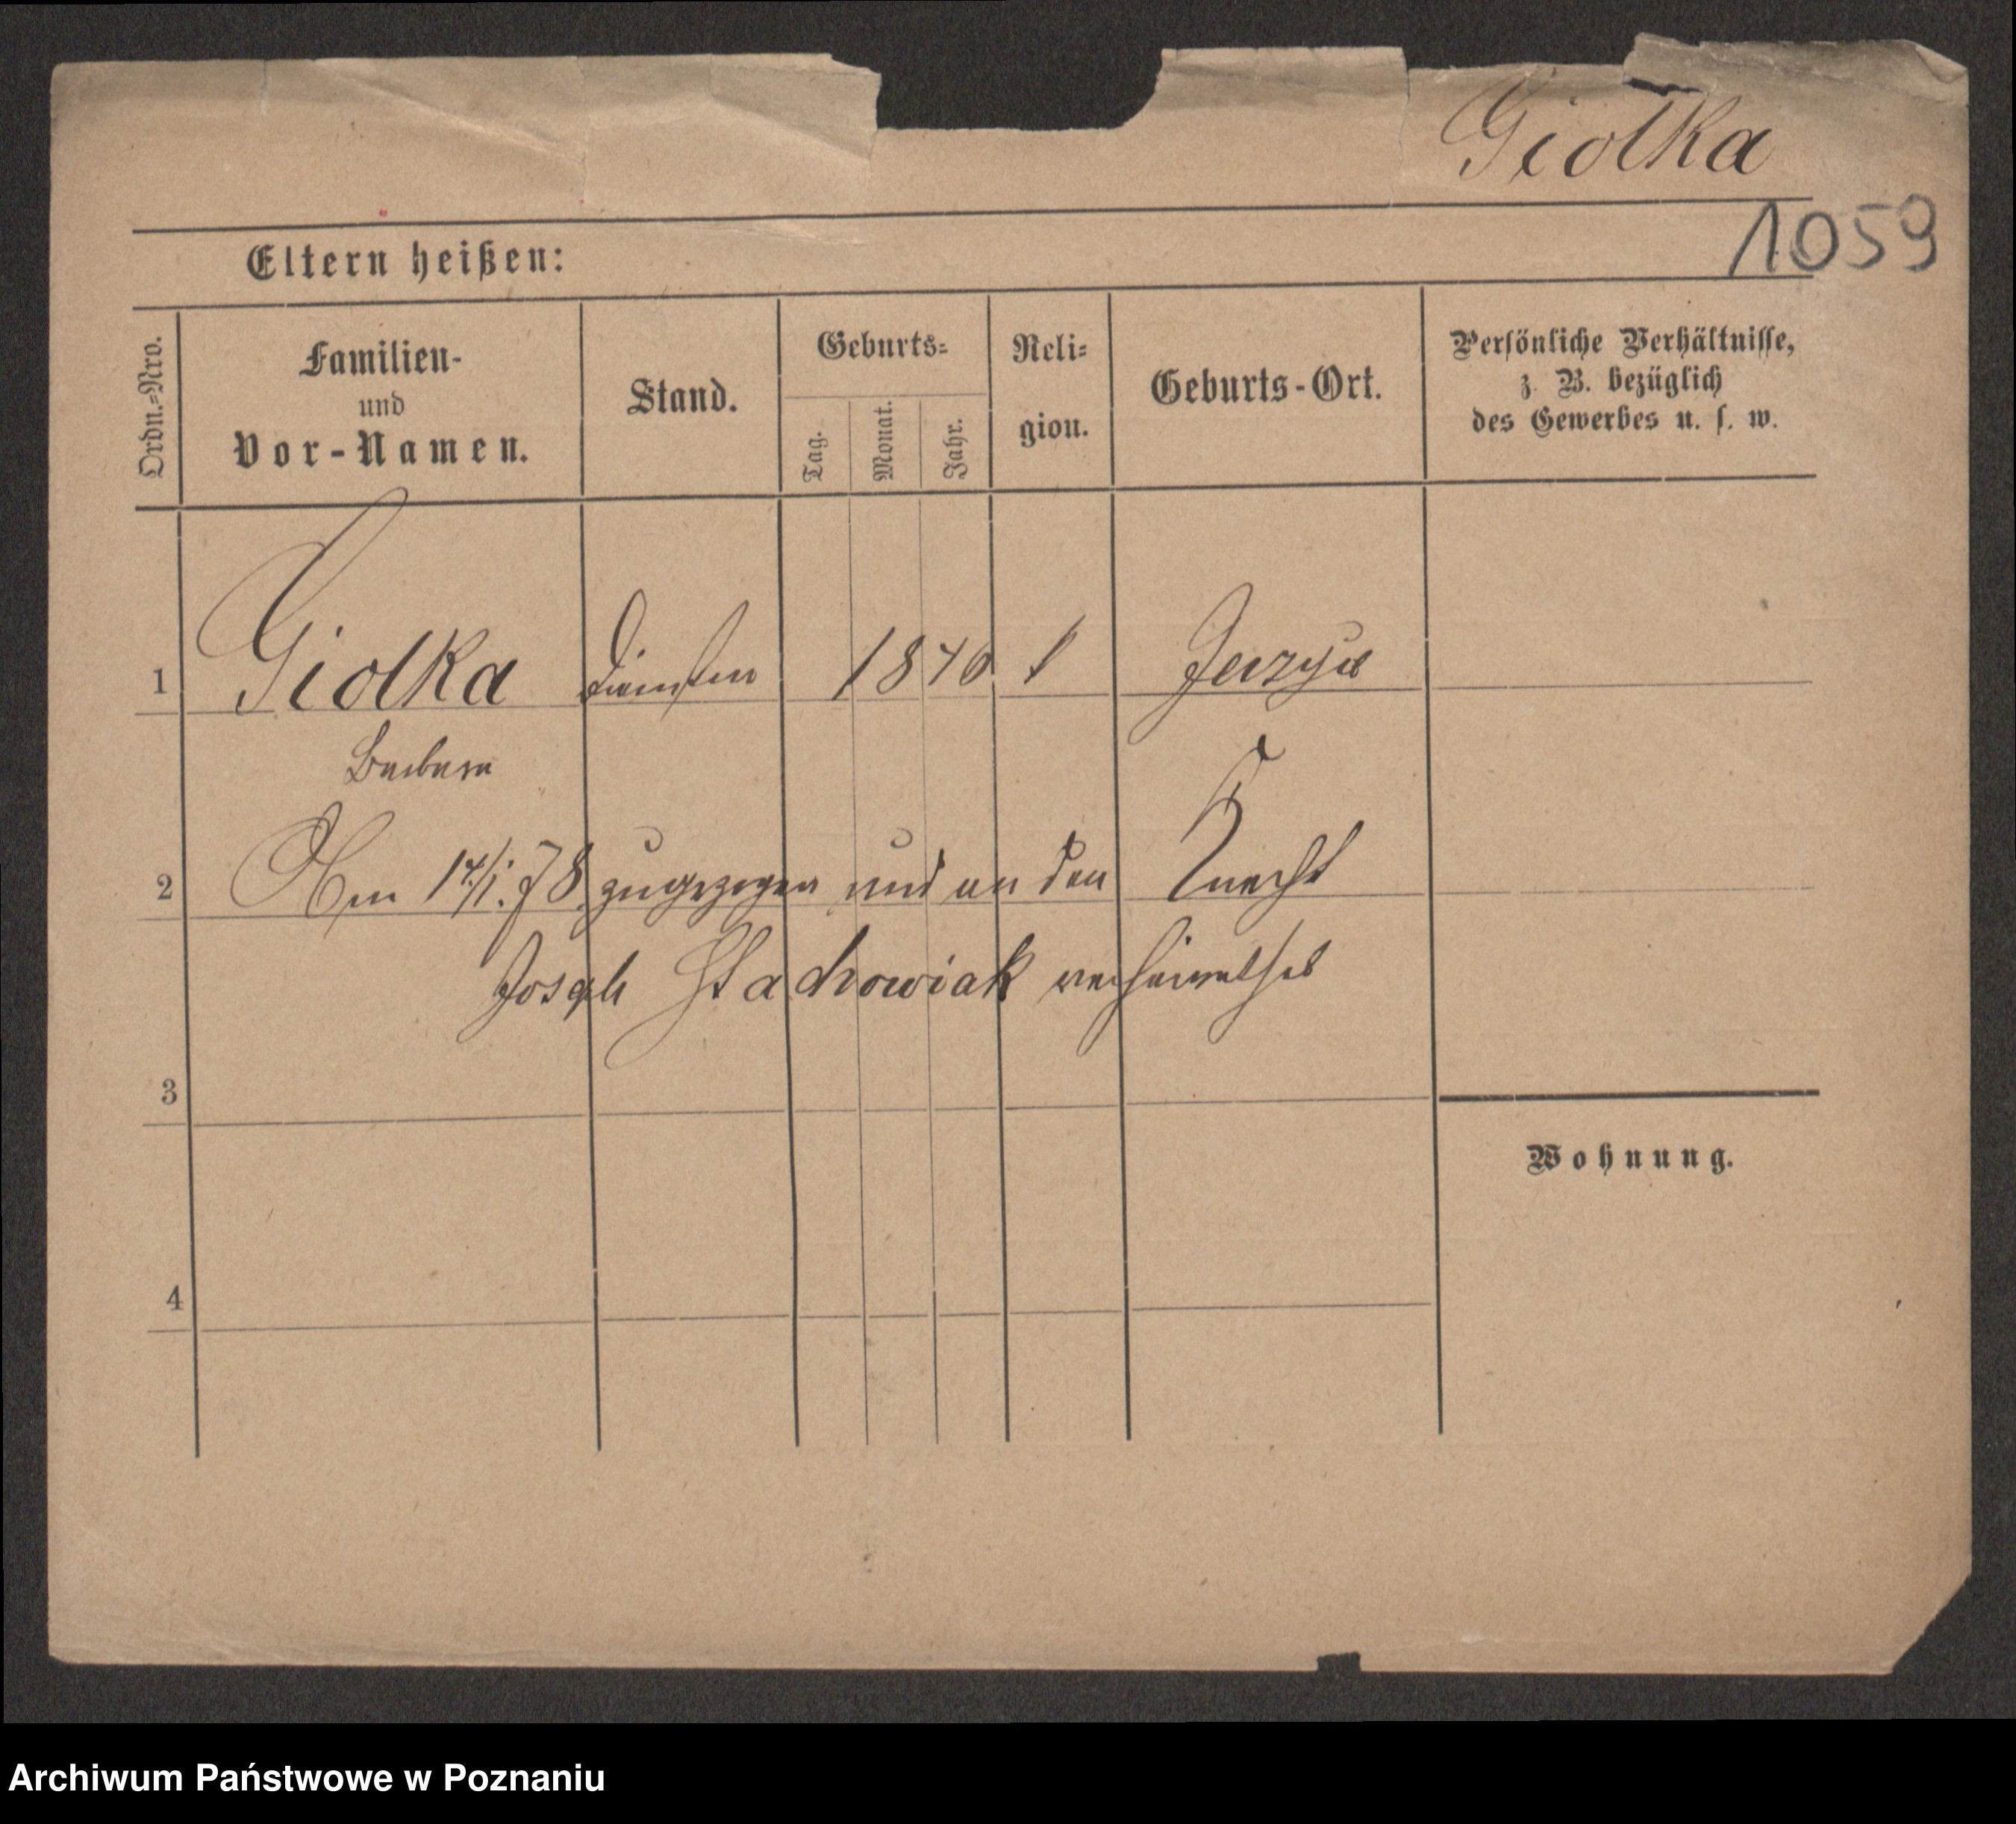 Giolka
1059
Eltern heißen:
Ordn.=Nro.
Familien-
und
Vor-Namen.
Stand.
Geburts=
Tag.
Monat.
Jahr.
Reli=
gion.
Geburts-Ort.
Persönliche Verhältnisse,
z. B. bezüglich
des Gewerbes u. s. w.
1 Giolka 1840
Barbara
2 Am 14/1.78 zugezogen und an den Knecht
Joseph Stachowiak verheirathet
3
Wohnung.
4
Archiwum Państwowe w Poznaniu